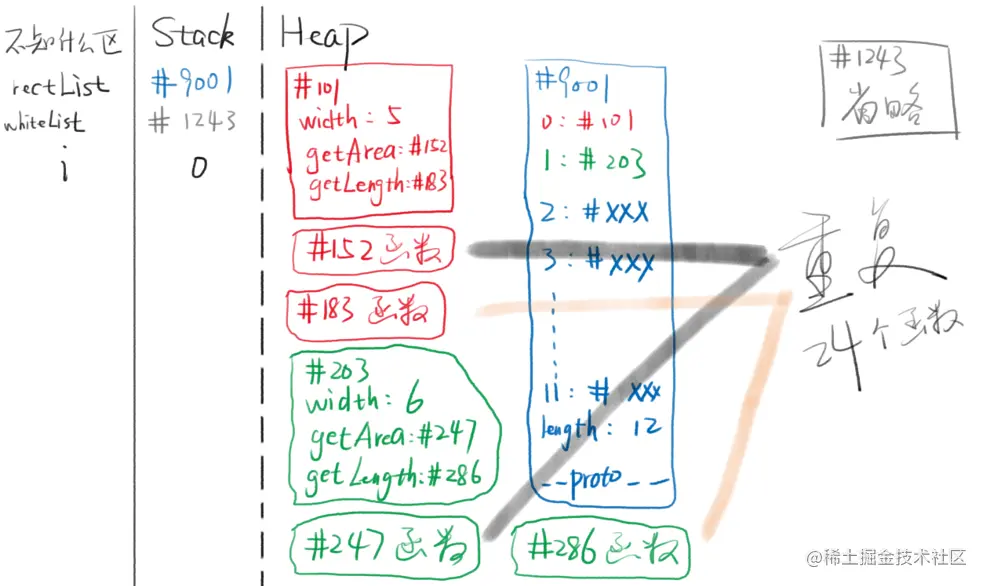 不知什么区
Stack
Heap
rectList
#9001
whiteList
#1243
i
0
#101
width: 5
getArea:#152
getLength:#183
#152函数
#183 函数
#203
width: 6
getArea:#247
getLength:#286
#247函数
#286函数
#9001
0: #101
1: #203
2: #XXX
3: #XXX
11: # XXX
length: 12
--proto--
#1243
省略
重复
24个函数
@稀土掘金技术社区